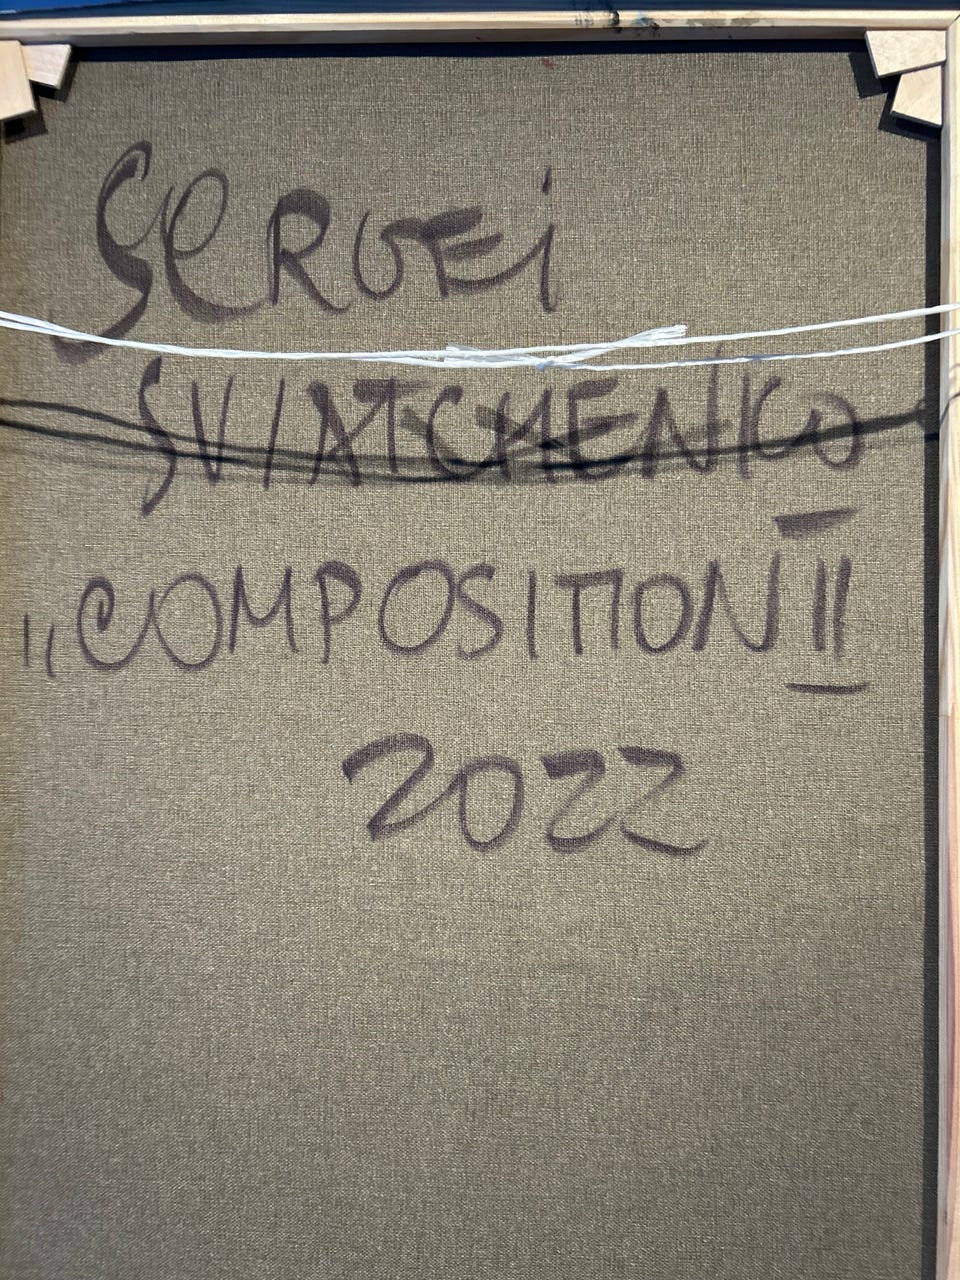 SERGEi
SVIATCHENKO
„COMPOSITION II
2022